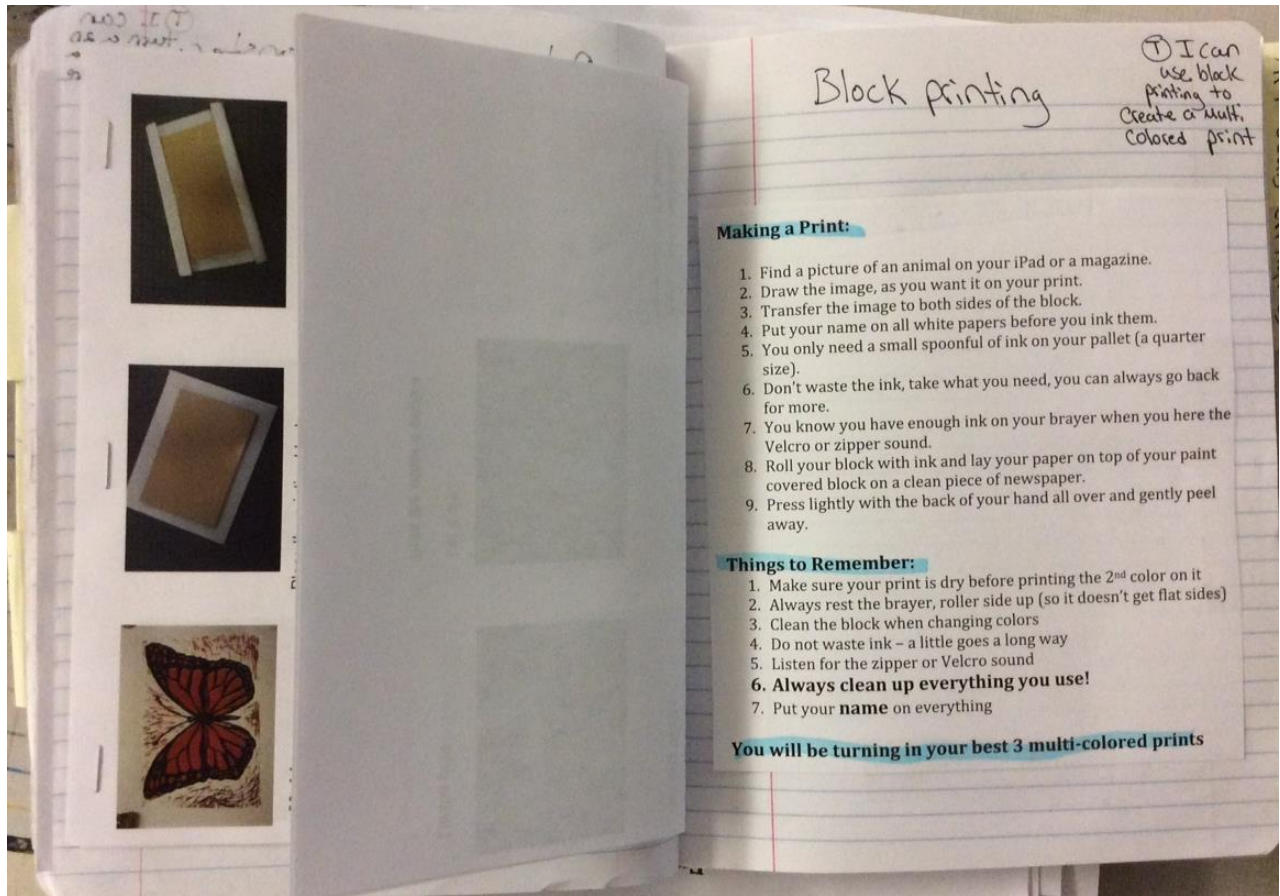 Block printing
Ⓣ I can
use block
printing to
Create a Multi
Colored print
Making a Print:
1. Find a picture of an animal on your iPad or a magazine.
2. Draw the image, as you want it on your print.
3. Transfer the image to both sides of the block.
4. Put your name on all white papers before you ink them.
5. You only need a small spoonful of ink on your pallet (a quarter
size).
6. Don't waste the ink, take what you need, you can always go back
for more.
7. You know you have enough ink on your brayer when you here the
Velcro or zipper sound.
8. Roll your block with ink and lay your paper on top of your paint
covered block on a clean piece of newspaper.
9. Press lightly with the back of your hand all over and gently peel
away.
Things to Remember:
1. Make sure your print is dry before printing the 2nd color on it
2. Always rest the brayer, roller side up (so it doesn't get flat sides)
3. Clean the block when changing colors
4. Do not waste ink – a little goes a long way
5. Listen for the zipper or Velcro sound
6. Always clean up everything you use!
7. Put your name on everything
You will be turning in your best 3 multi-colored prints